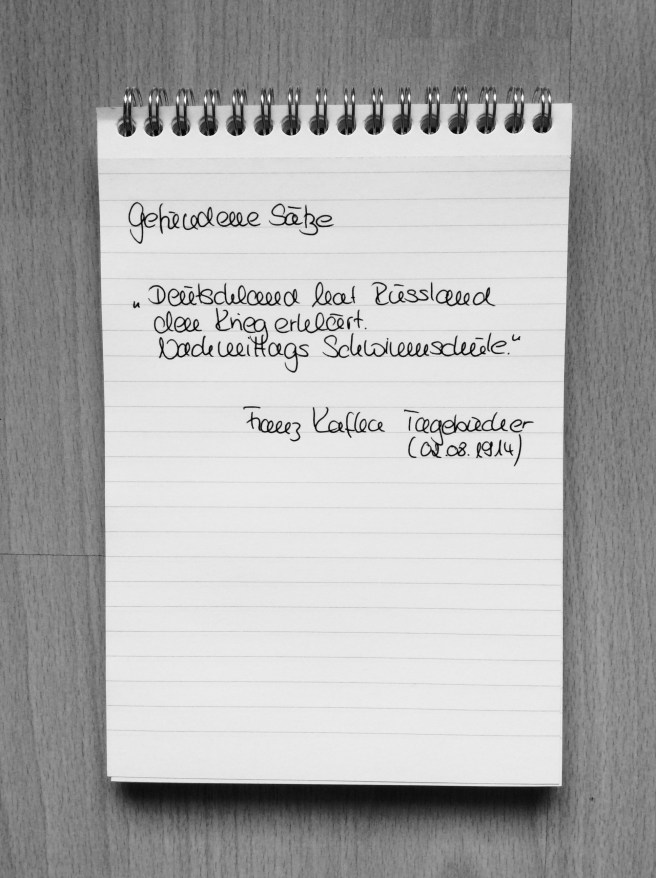 Gefundene Sätze
„Deutschland hat Russland
den Krieg erklärt.
Nachmittags Schwimmschule.“
Franz Kafka Tagebücher
(02.08.1914)